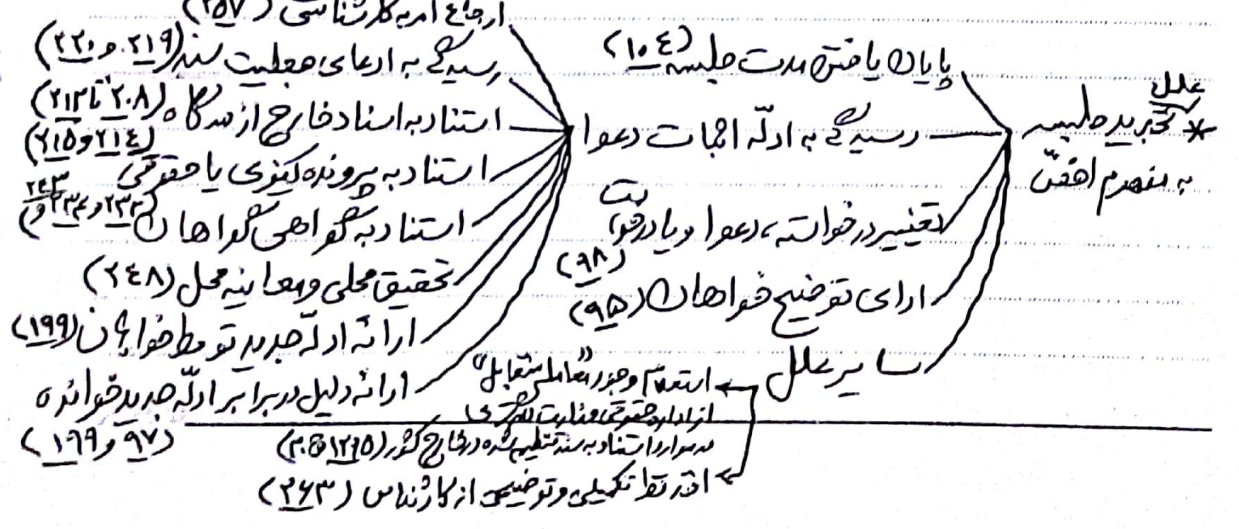 علل
* تجدید جلسه
به مفهوم اخصّ
پایان یافتن مدت جلسه (۱۰٤)
رسیدگی به ادلّه اثبات دعوا
تغییر درخواسته، دعوا و یا درخواست
(۹۸)
ادای توضیح خواهان (۹۵)
سایر علل
ارجاع امر به کارشناسی (۲۵۷)
رسیدگی به ادعای جعلیت سند (۲۱۹ و ۲۲۰)
استناد به اسناد خارج از دادگاه (۲۰۸ تا ۲۱۲)
استناد به پرونده کیفری یا حقوقی (۲۱٤ و ۲۱۵)
استناد به گواهی گواهان
تحقیق محلی و معاینه محل (۲٤۸)
ارائه ادلّه جدید توسط خواهان (۱۹۹)
ارائه دلیل در برابر ادلّه جدید خوانده
(۹۷ و ۱۹۹)
استعلام وجود "معامله متقابل"
از اداره حقوقی وزارت دادگستری
در موارد استناد به سند تنظیم شده در خارج کشور
اخذ نظر تکمیلی و توضیحی از کارشناس (۲۶۳)